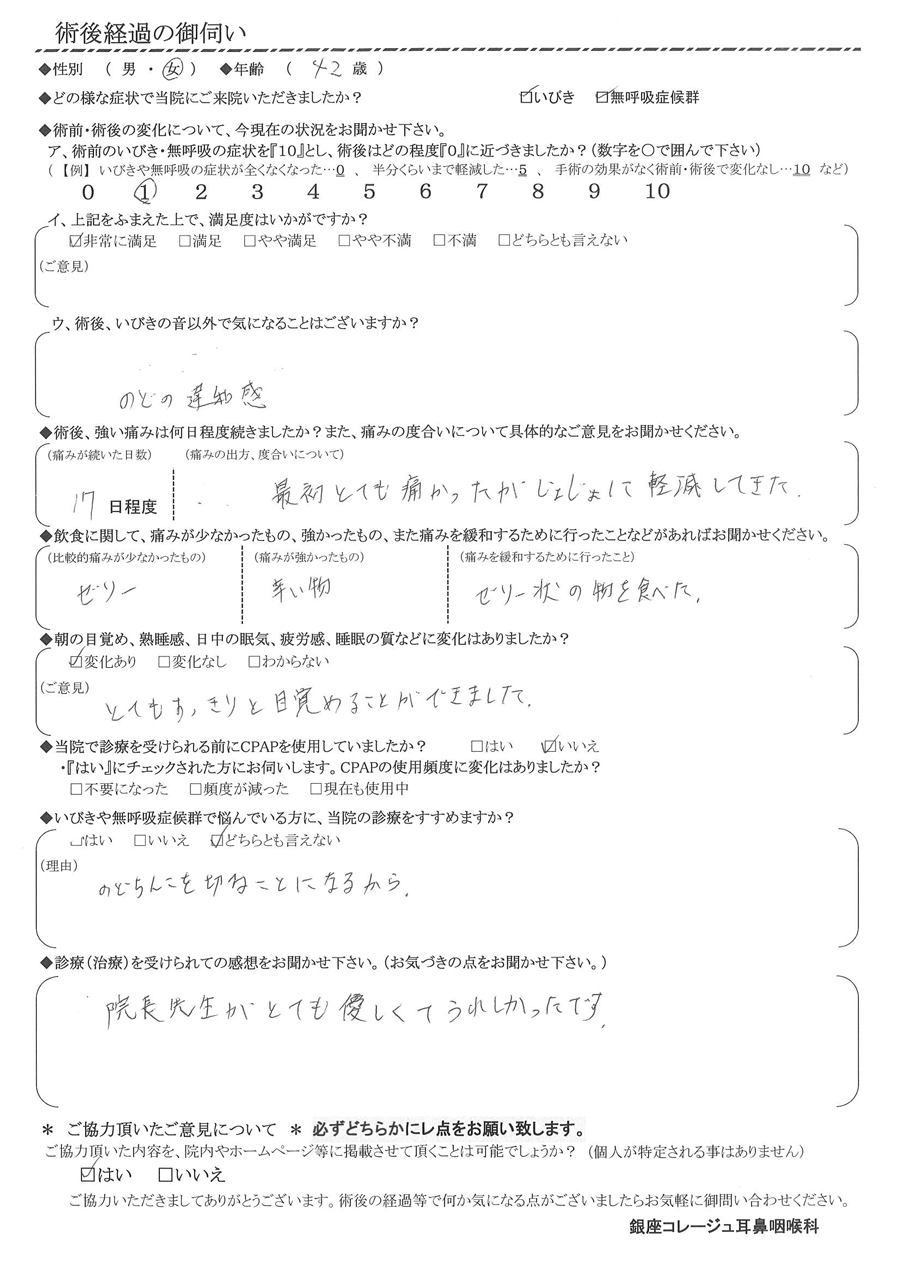 術後経過の御伺い
◆性別　（ 男 ・ 女 ）　◆年齢　（ 42 歳 ）
◆どの様な症状で当院にご来院いただきましたか？　☑いびき　☑無呼吸症候群
◆術前・術後の変化について、今現在の状況をお聞かせ下さい。
ア、術前のいびき・無呼吸の症状を『10』とし、術後はどの程度『0』に近づきましたか？（数字を○で囲んで下さい）
（ 【例】 いびきや無呼吸の症状が全くなくなった…0 、 半分くらいまで軽減した…5 、 手術の効果がなく術前・術後で変化なし…10 など）
0　1　2　3　4　5　6　7　8　9　10
イ、上記をふまえた上で、満足度はいかがですか？
☑非常に満足　□満足　□やや満足　□やや不満　□不満　□どちらとも言えない
（ご意見）
ウ、術後、いびきの音以外で気になることはございますか？
のどの違和感
◆術後、強い痛みは何日程度続きましたか？また、痛みの度合いについて具体的なご意見をお聞かせください。
（痛みが続いた日数）　（痛みの出方、度合いについて）
17 日程度　最初とても痛かったがじょじょに軽減してきた.
◆飲食に関して、痛みが少なかったもの、強かったもの、また痛みを緩和するために行ったことなどがあればお聞かせください。
（比較的痛みが少なかったもの）　（痛みが強かったもの）　（痛みを緩和するために行ったこと）
ゼリー　辛い物　ゼリー状の物を食べた.
◆朝の目覚め、熟睡感、日中の眠気、疲労感、睡眠の質などに変化はありましたか？
☑変化あり　□変化なし　□わからない
（ご意見）
とてもすっきりと目覚めることができました.
◆当院で診療を受けられる前にCPAPを使用していましたか？　□はい　☑いいえ
・『はい』にチェックされた方にお伺いします。CPAPの使用頻度に変化はありましたか？
□不要になった　□頻度が減った　□現在も使用中
◆いびきや無呼吸症候群で悩んでいる方に、当院の診療をすすめますか？
□はい　□いいえ　☑どちらとも言えない
（理由）
のどちんこを切ることになるから.
◆診療（治療）を受けられての感想をお聞かせ下さい。（お気づきの点をお聞かせ下さい。）
院長先生がとても優しくてうれしかったです.
＊ ご協力頂いたご意見について ＊ 必ずどちらかにレ点をお願い致します。
ご協力頂いた内容を、院内やホームページ等に掲載させて頂くことは可能でしょうか？（個人が特定される事はありません）
☑はい　□いいえ
ご協力いただきましてありがとうございます。術後の経過等で何か気になる点がございましたらお気軽に御問い合わせください。
銀座コレージュ耳鼻咽喉科